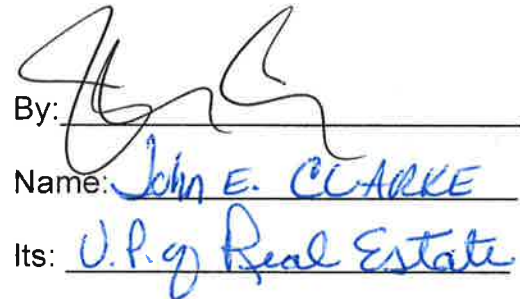 By:
Name: John E. CLARKE
Its: V.P. of Real Estate